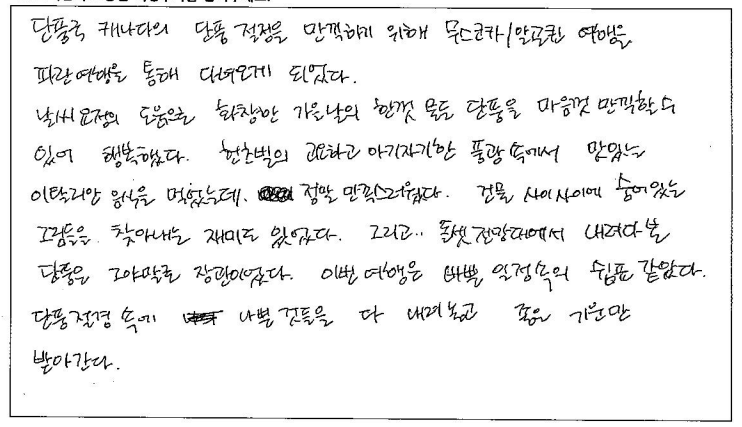 단풍국 캐나다의 단풍 절정을 만끽하기 위해 무스코카/알곤퀸 여행을
파란여행을 통해 다녀오게 되었다.
날씨요정의 도움으로 화창한 가을날의 한껏 물든 단풍을 마음껏 만끽할 수
있어 행복했다. 헌츠빌의 고요하고 아기자기한 풍광 속에서 맛있는
이탈리안 음식을 먹었는데. 정말 만족스러웠다. 건물 사이사이에 숨어있는
그림들을 찾아내는 재미도 있었다. 그리고.. 돌셋전망대에서 내려다본
단풍은 그야말로 장관이었다. 이번 여행은 바쁜 일정속의 쉼표 같았다.
단풍절경 속에 나쁜 것들을 다 내려놓고 좋은 기운만
받아간다.